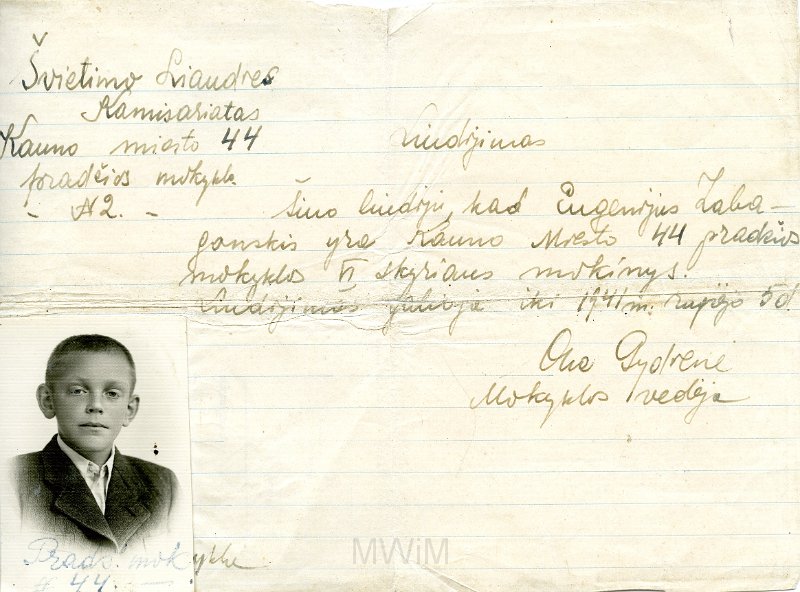 Švietimo Liaudies
Kamisariatas
Kauno miesto 44
pradžios mokykla
- №2. -
Liudijimas
Šiuo liudiju, kad Eugenijus Zaba-
gonskis yra Kauno Miesto 44 pradžios
mokyklos VI skyriaus mokinys.
Liudijimas galioja iki 1941 m. rugsėjo 5 d.
Ona
Mokyklos vedėja
Pradž. mokykla
№ 44.
MWiM